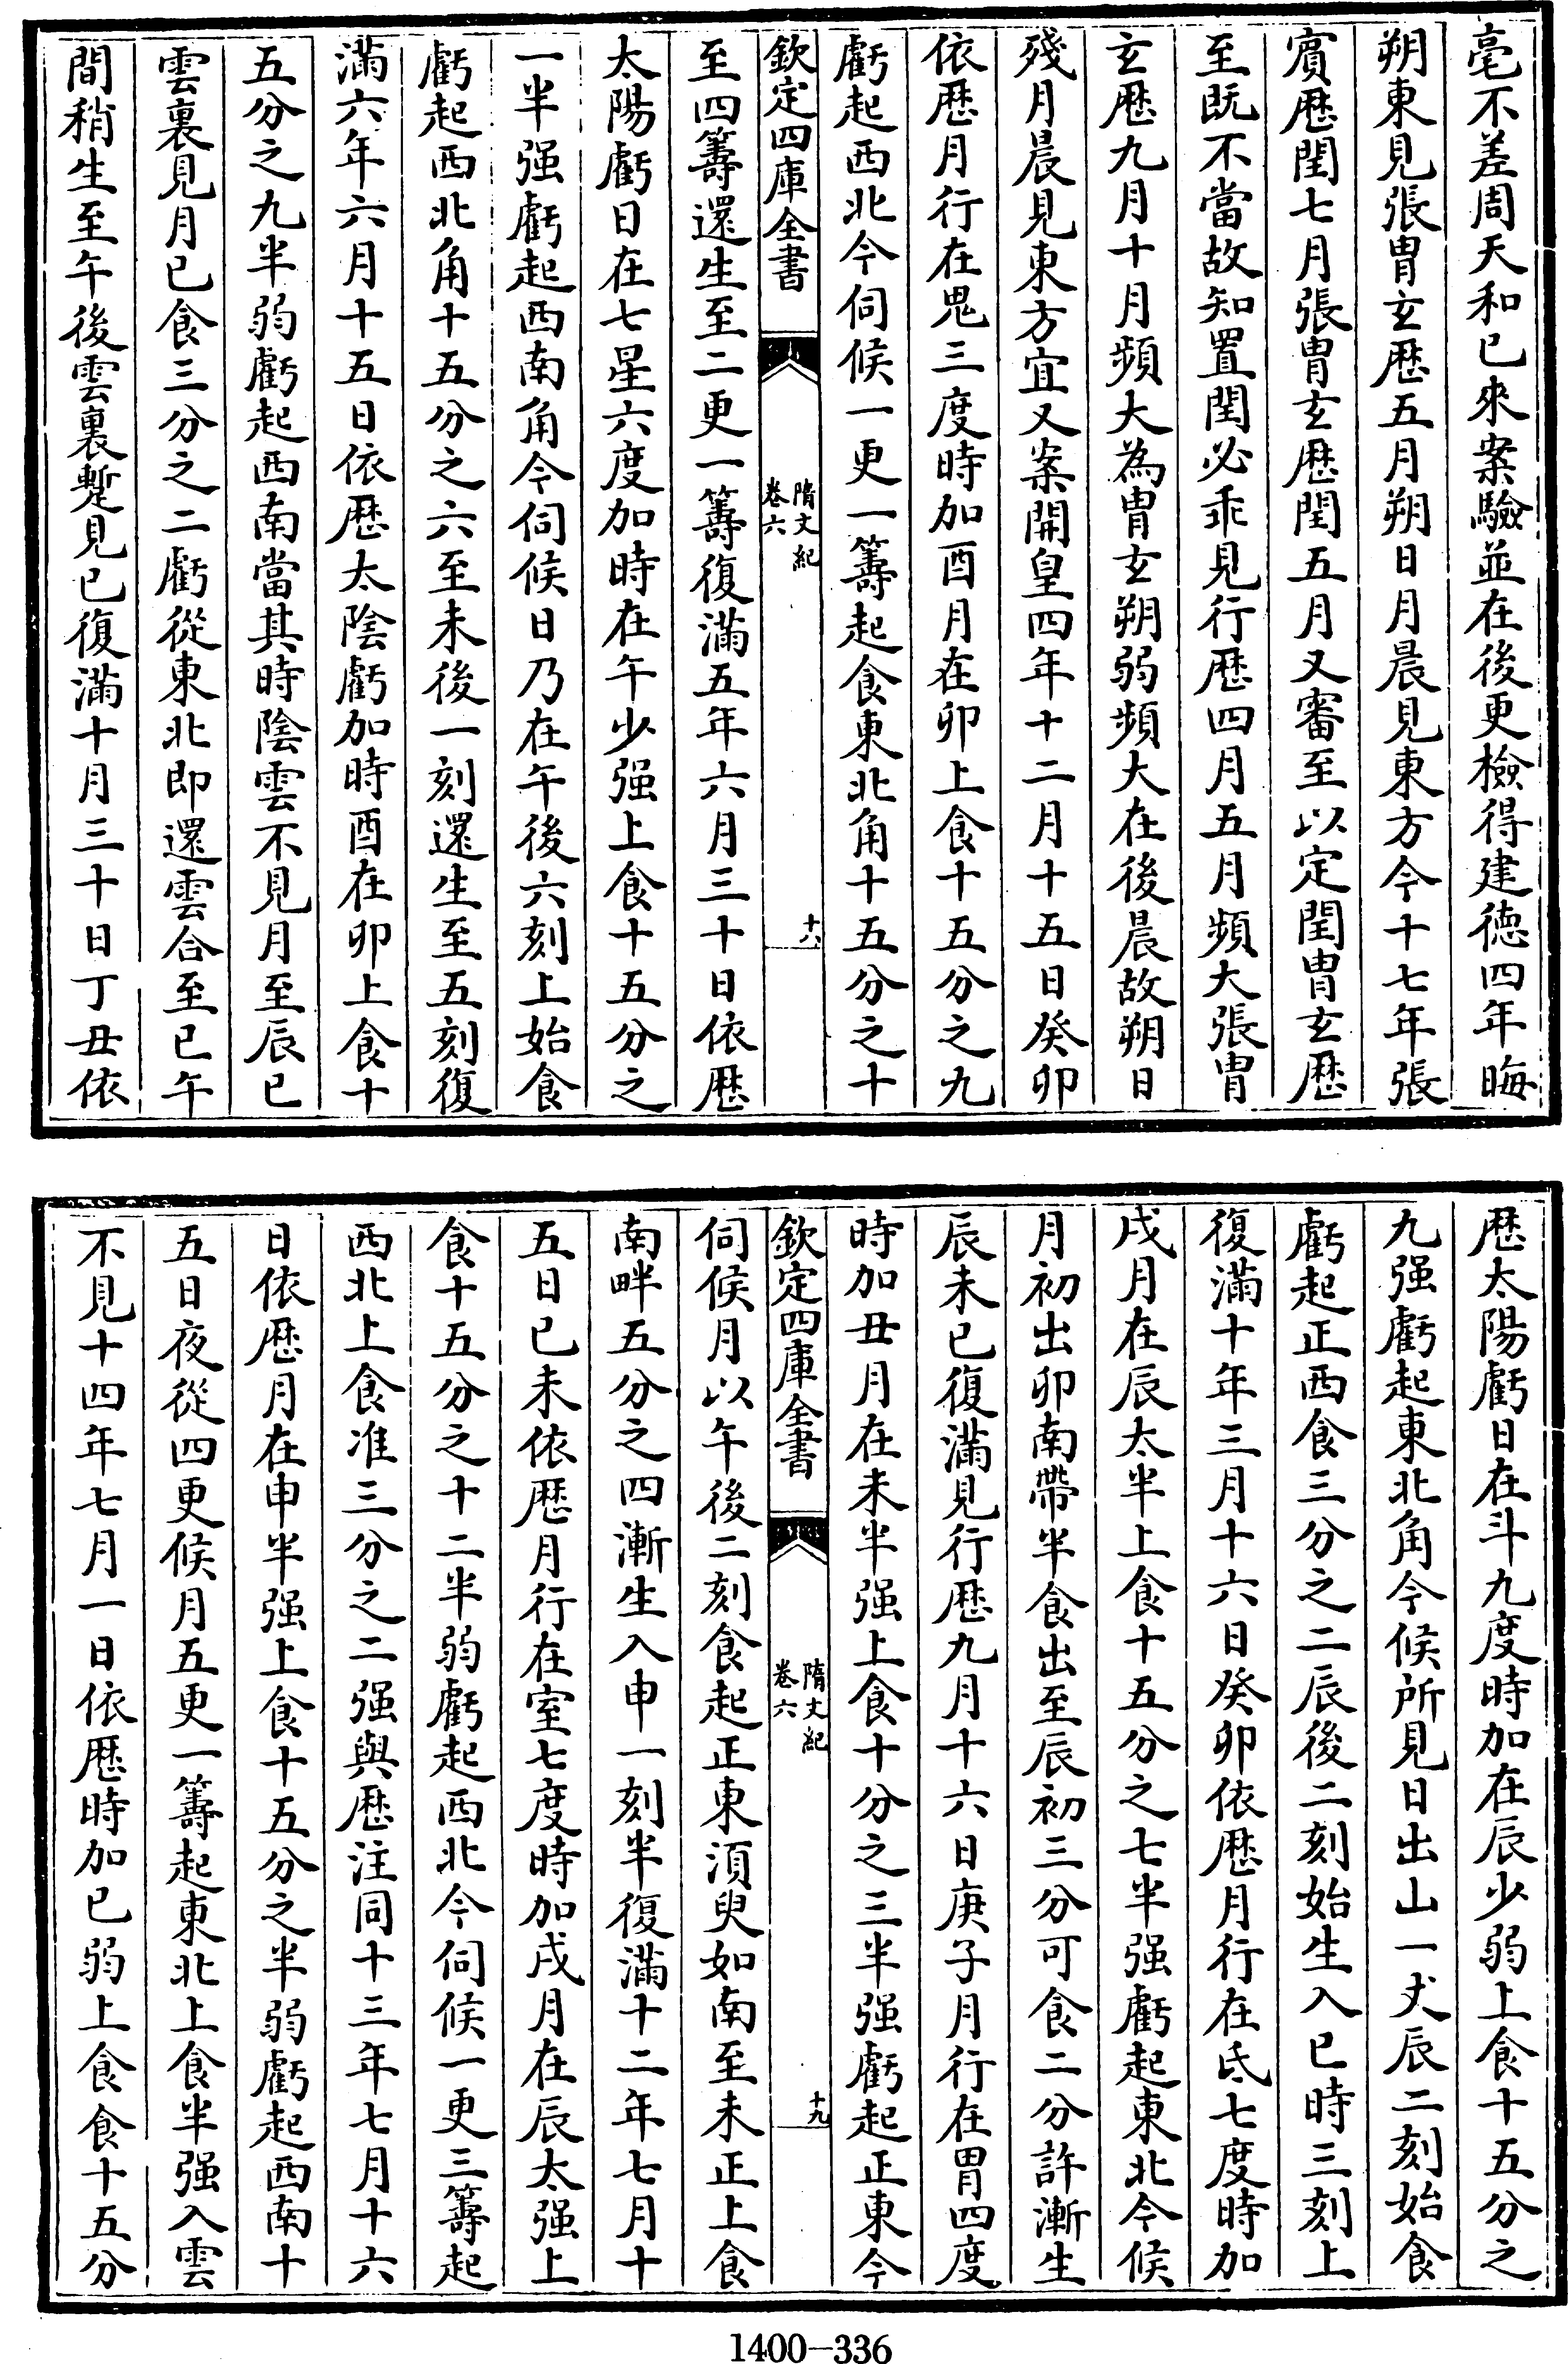 毫不差周天和已來案驗並在後更檢得建德四年晦
朔東見張胄玄厯五月朔日月晨見東方今十七年張
賔厯閏七月張胄玄厯閏五月又審至以定閏胄玄厯
至既不當故知置閏必乖見行厯四月五月頻大張胄
玄厯九月十月頻大為胄玄朔弱頻大在後晨故朔日
殘月晨見東方宜又案開皇四年十二月十五日癸卯
依厯月行在鬼三度時加酉月在卯上食十五分之九
虧起西北今伺候一更一籌起食東北角十五分之十
欽定四庫全書
隋文紀
卷六
十八
至四籌還生至二更一籌復滿五年六月三十日依厯
太陽虧日在七星六度加時在午少强上食十五分之
一半强虧起西南角今伺候日乃在午後六刻上始食
虧起西北角十五分之六至未後一刻還生至五刻復
滿六年六月十五日依厯太陰虧加時酉在卯上食十
五分之九半弱虧起西南當其時陰雲不見月至辰巳
雲裏見月已食三分之二虧從東北即還雲合至巳午
間稍生至午後雲裏蹔見已復滿十月三十日丁丑依
厯太陽虧日在斗九度時加在辰少弱上食十五分之
九强虧起東北角今候所見日出山一丈辰二刻始食
虧起正西食三分之二辰後二刻始生入巳時三刻上
復滿十年三月十六日癸卯依厯月行在氐七度時加
戌月在辰太半上食十五分之七半强虧起東北今候
月初出卯南帶半食出至辰初三分可食二分許漸生
辰未已復滿見行厯九月十六日庚子月行在胃四度
時加丑月在未半强上食十分之三半强虧起正東今
欽定四庫全書
隋文紀
卷六
十九
伺候月以午後二刻食起正東湏臾如南至未正上食
南畔五分之四漸生入申一刻半復滿十二年七月十
五日己未依厯月行在室七度時加戌月在辰太强上
食十五分之十二半弱虧起西北今伺候一更三籌起
西北上食准三分之二强與厯注同十三年七月十六
日依厯月在申半强上食十五分之半弱虧起西南十
五日夜從四更候月五更一籌起東北上食半强入雲
不見十四年七月一日依厯時加巳弱上食食十五分
1400-336